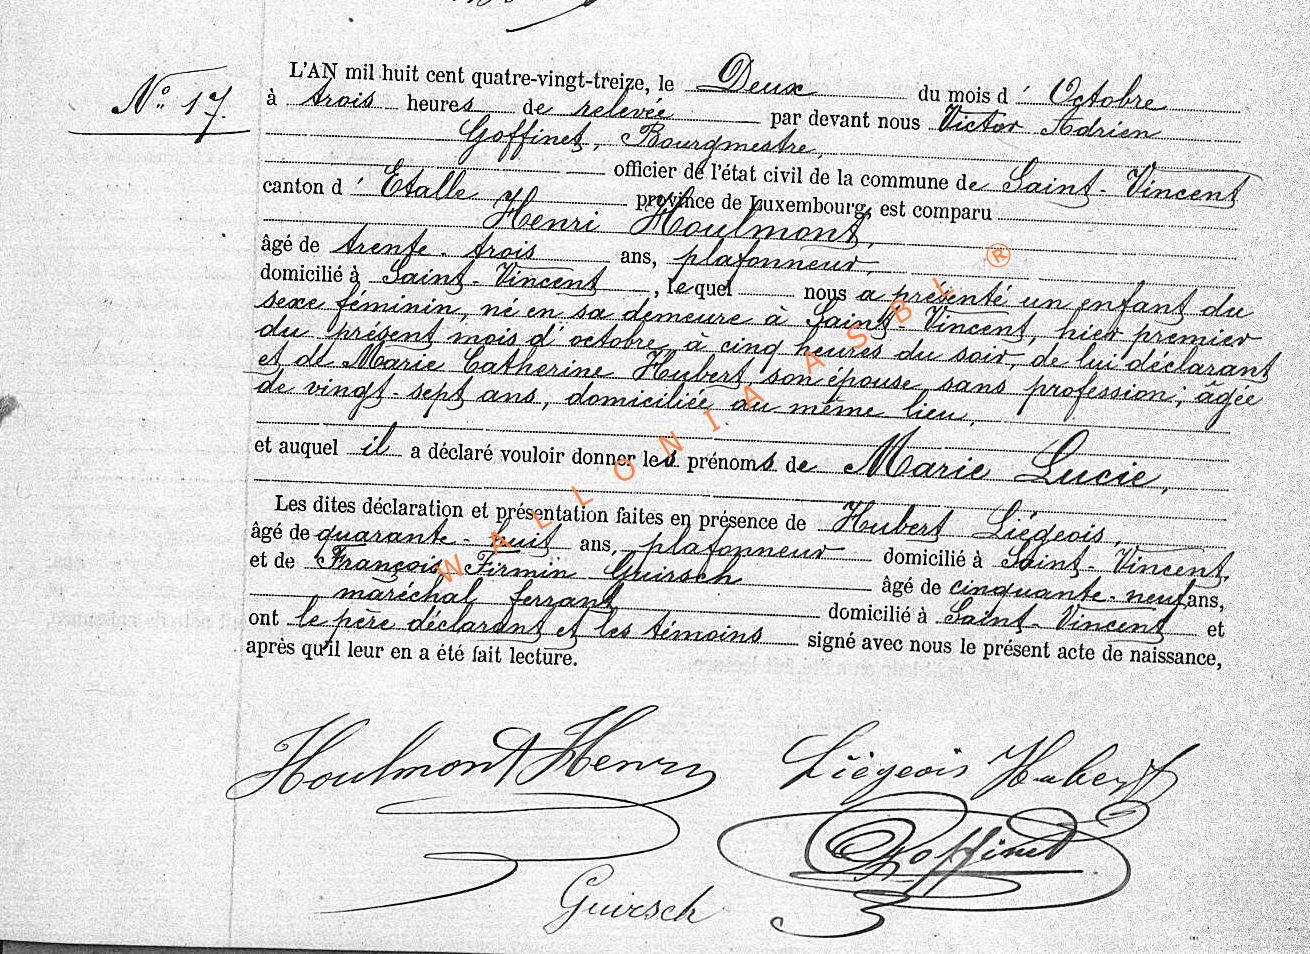 L'AN mil huit cent quatre-vingt-treize, le Deux du mois d' Octobre
N° 17.
à trois heures de relevée par devant nous Victor Adrien
Goffinet, Bourgmestre,
officier de l'état civil de la commune de Saint-Vincent
canton d' Etalle province de Luxembourg, est comparu
Henri Houlmont,
âgé de trente-trois ans, plafonneur,
domicilié à Saint-Vincent, lequel nous a présenté un enfant du
sexe féminin, né en sa demeure à Saint-Vincent, hier premier
du présent mois d'octobre, à cinq heures du soir, de lui déclarant
et de Marie Catherine Hubert, son épouse, sans profession, âgée
de vingt-sept ans, domiciliée au même lieu,
et auquel il a déclaré vouloir donner les prénoms de Marie Lucie,
Les dites déclaration et présentation faites en présence de Hubert Liégeois,
âgé de quarante-huit ans, plafonneur domicilié à Saint-Vincent,
et de François Firmin Guirsch âgé de cinquante-neuf ans,
maréchal ferrant domicilié à Saint-Vincent et
ont le père déclarant et les témoins signé avec nous le présent acte de naissance,
après qu'il leur en a été fait lecture.
Houlmont Henry Liégeois Hubert
Goffinet
Guirsch
WALLONIA ASBL ®